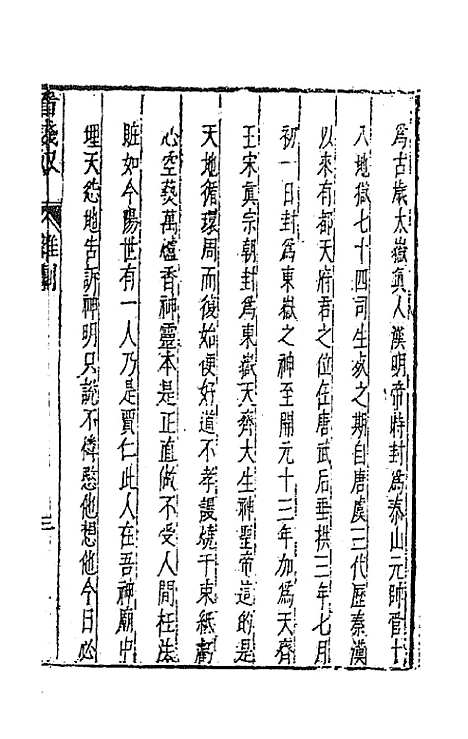 爲古歲太嶽眞人漢明帝時封爲泰山元帥管十
八地獄七十四司生死之期自唐虞三代歷秦漢
以來有都天府君之位在唐武后垂拱三年七月
初一日封爲東嶽之神至開元十三年加爲天齊
王宋眞宗朝封爲東嶽天齊大生神聖帝這的是
天地循環周而復始便好道不孝謾燒千束紙虧
心空爇萬爐香神靈本是正直做不受人間枉法
賍如今陽世有一人乃是賈仁此人在吾神廟中
埋天怨地告訴神明只說不憐愍他想他今日必
看錢奴
雜劇
三